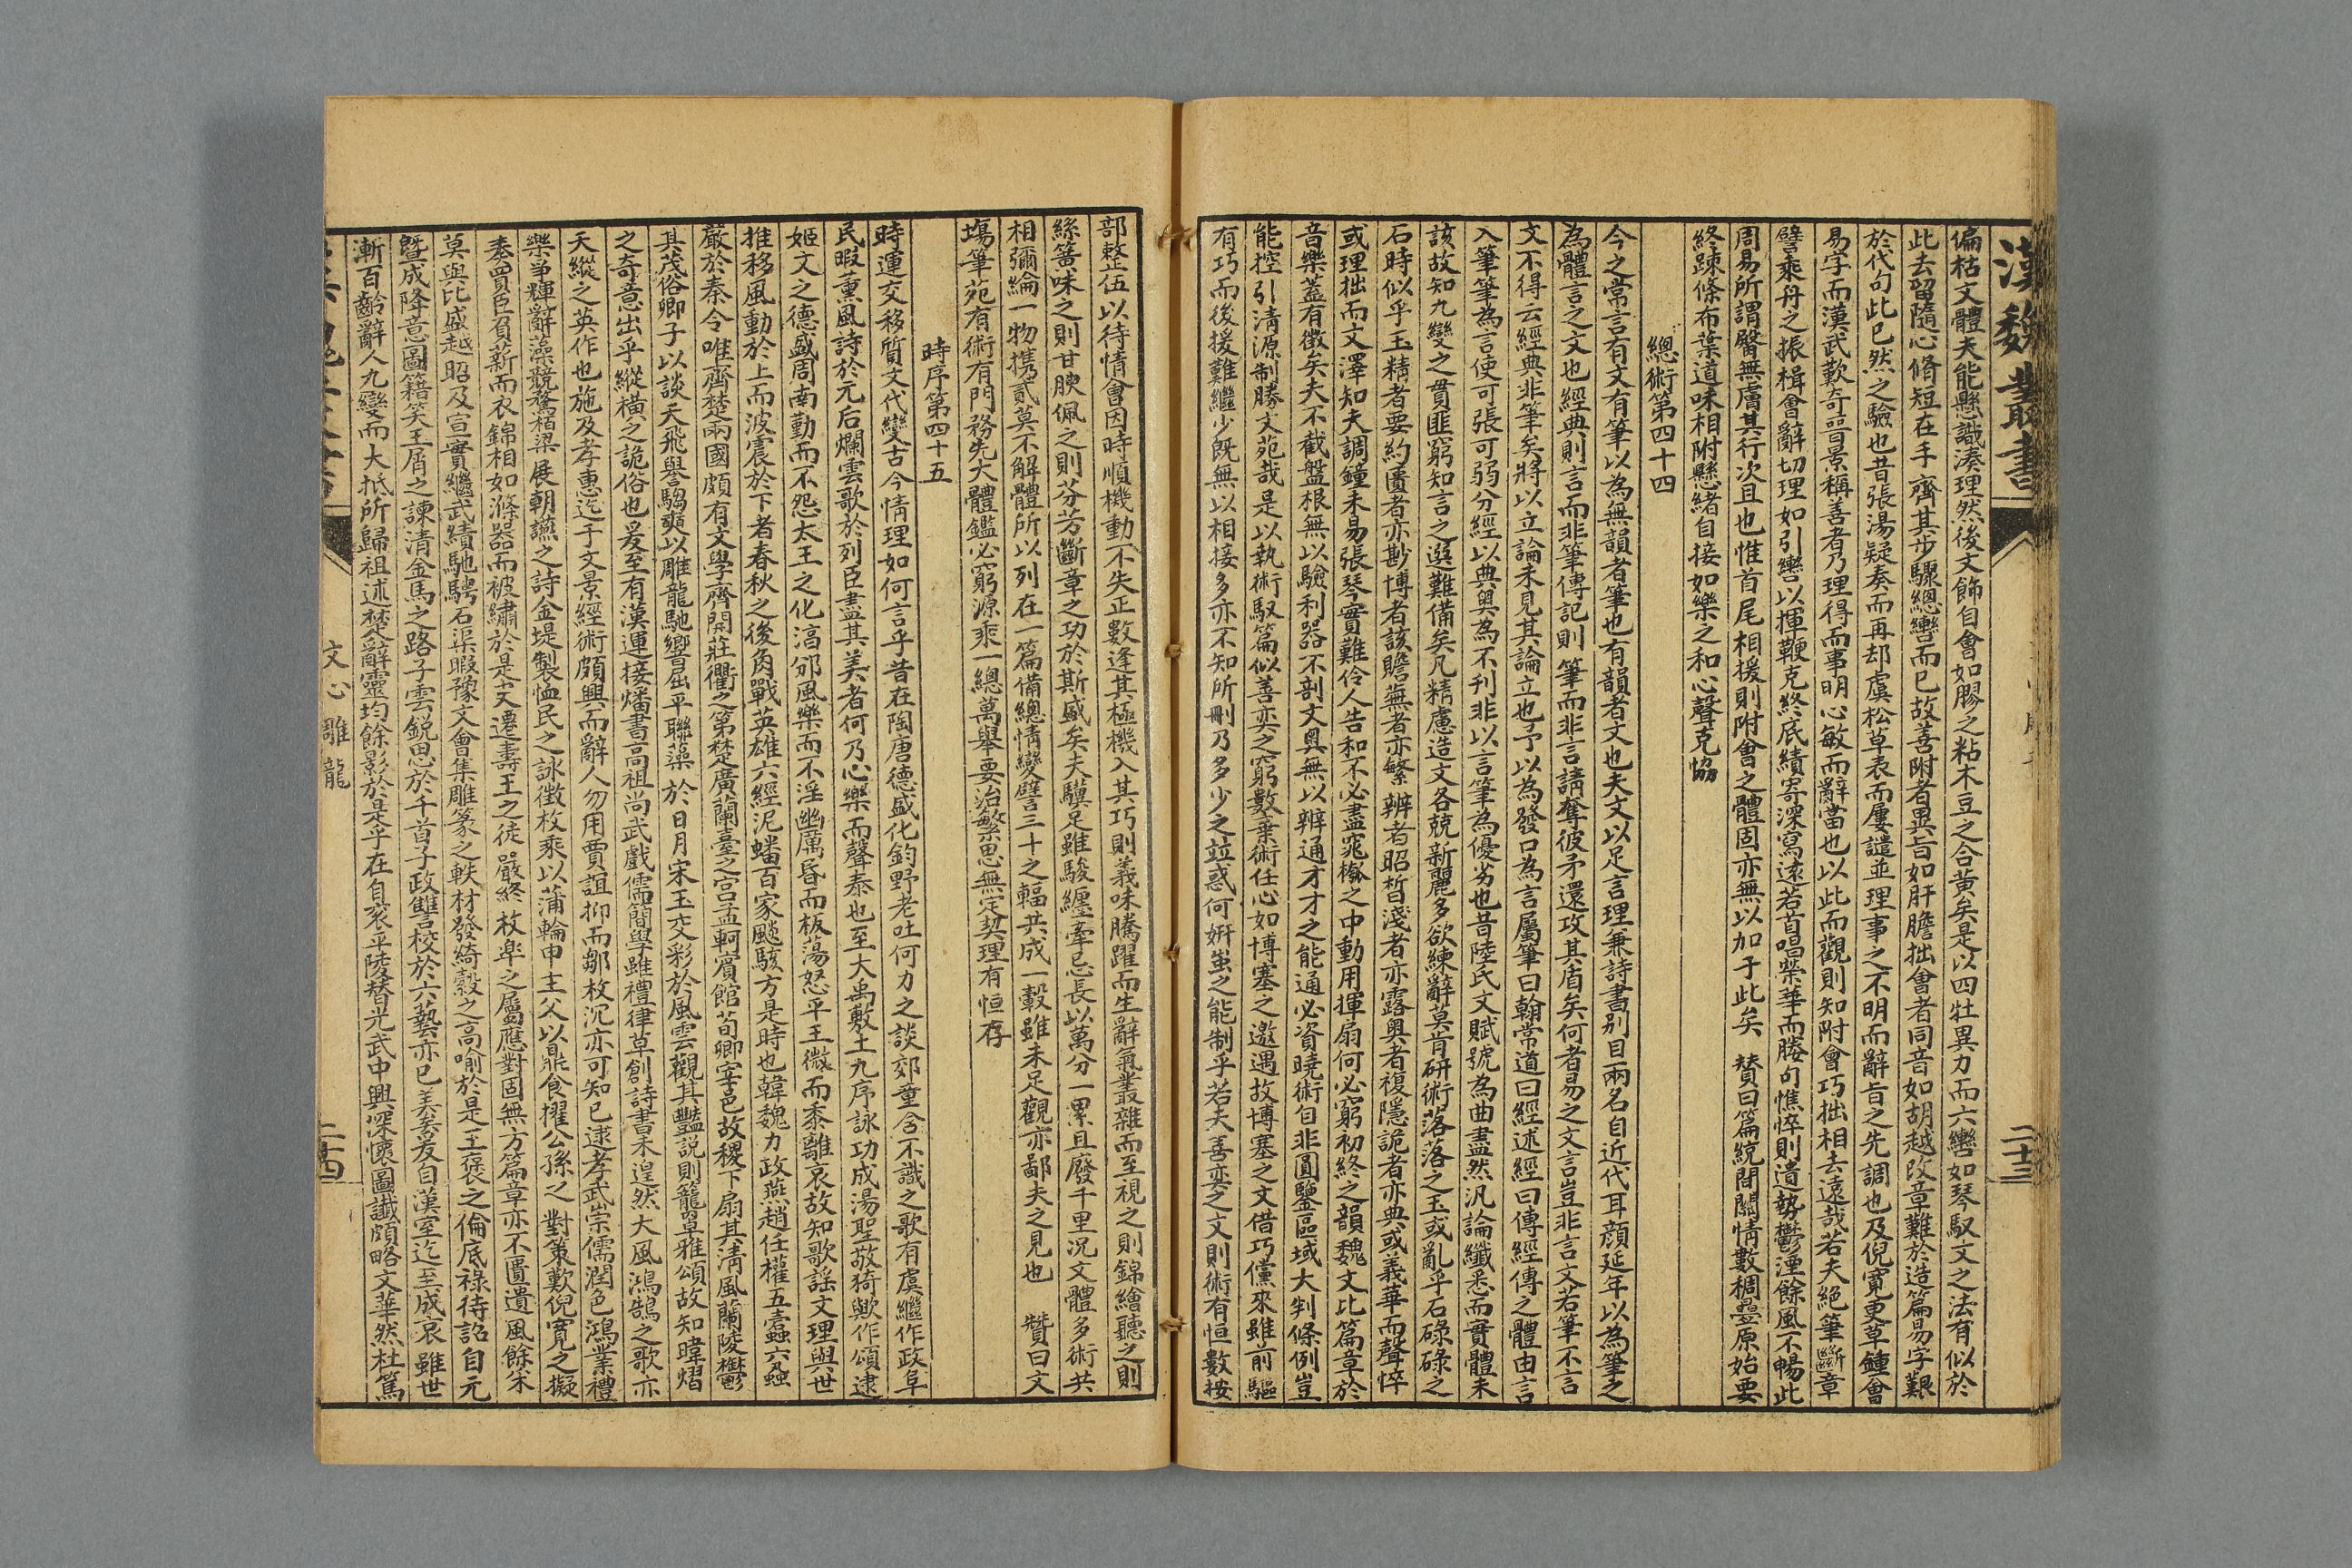 漢魏叢書
二十三
偏枯文體夫能懸識湊理然後文飾自會如膠之粘木豆之合黃矣是以四牡異力而六轡如琴馭文之法有似於
此去留隨心脩短在手齊其步驟總轡而已故善附者異旨如肝膽拙會者同音如胡越改章難於造篇易字艱
於代句此已然之驗也昔張湯疑奏而再却虞松草表而屢譴並理事之不明而辭旨之先調也及倪寬更草鍾會
易字而漢武歎奇晉景稱善者乃理得而事明心敏而辭當也以此而觀則知附會巧拙相去遠哉若夫絕筆斷章
譬乘舟之振楫會辭切理如引轡以揮鞭克終底績寄深寫遠若首唱榮華而媵句憔悴則遺勢鬱湮餘風不暢此
周易所謂臀無膚其行次且也惟首尾相援則附會之體固亦無以加于此矣　贊曰篇統間關情數稠疊原始要
終踈條布葉道味相附懸緒自接如樂之和心聲克恊
總術第四十四
今之常言有文有筆以為無韻者筆也有韻者文也夫文以足言理兼詩書別目兩名自近代耳顏延年以為筆之
為體言之文也經典則言而非筆傳記則筆而非言請奪彼矛還攻其盾矣何者易之文言豈非言文若筆不言
文不得云經典非筆矣將以立論未見其論立也予以為發口為言屬筆曰翰常道曰經述經曰傳經傳之體由言
入筆筆為言使可張可弱分經以典奧為不刊非以言筆為優劣也昔陸氏文賦號為曲盡然汎論纖悉而實體未
該故知九變之貫匪窮知言之選難備矣凡精慮造文各競新麗多欲練辭莫肯研術落落之玉或亂乎石碌碌之
石時似乎玉精者要約匱者亦尠博者該贍蕪者亦繁辨者昭晳淺者亦露奧者複隱詭者亦典或義華而聲悴
或理拙而文澤知夫調鐘未易張琴實難伶人告和不必盡窕槬之中動用揮扇何必窮初終之韻魏文比篇章於
音樂蓋有徵矣夫不截盤根無以驗利器不剖文奧無以辨通才才之能通必資曉術自非圓鑒區域大判條例豈
能控引清源制勝文苑哉是以執術馭篇似善弈之窮數棄術任心如博塞之邀遇故博塞之文借巧儻來雖前驅
有巧而後援難繼少既無以相接多亦不知所刪乃多少之竝惑何妍蚩之能制乎若夫善弈之文則術有恒數按
部整伍以待情會因時順機動不失正數逢其極機入其巧則義味騰躍而生辭氣叢雜而至視之則錦繪聽之則
絲簧味之則甘腴佩之則芬芳斷章之功於斯盛矣夫驥足雖駿纆牽忌長以萬分一累且廢千里況文體多術共
相彌綸一物携貳莫不解體所以列在一篇備總情變譬三十之輻共成一轂雖未足觀亦鄙夫之見也　贊曰文
塲筆苑有術有門務先大體鑑必窮源乘一總萬舉要治繁思無定契理有恒存
時序第四十五
時運交移質文代變古今情理如何言乎昔在陶唐德盛化鈞野老吐何力之談郊童含不識之歌有虞繼作政阜
民暇薰風詩於元后爛雲歌於列臣盡其美者何乃心樂而聲泰也至大禹敷土九序詠功成湯聖敬猗歟作頌逮
姬文之德盛周南勤而不怨太王之化淳邠風樂而不淫幽厲昏而板蕩怒平王微而黍離哀故知歌謠文理與世
推移風動於上而波震於下者春秋之後角戰英雄六經泥蟠百家飈駭方是時也韓魏力政燕趙任權五蠹六蝨
嚴於秦令唯齊楚兩國頗有文學齊開莊衢之第楚廣蘭臺之宮孟軻賓館荀卿宰邑故稷下扇其清風蘭陵鬱
其茂俗鄒子以談天飛譽騶奭以雕龍馳響屈平聯藻於日月宋玉交彩於風雲觀其豔說則籠罩雅頌故知暐熠
之奇意出乎縱橫之詭俗也爰至有漢運接燔書高祖尚武戲儒簡學雖禮律草創詩書未遑然大風鴻鵠之歌亦
天縱之英作也施及孝惠迄于文景經術頗興而辭人勿用賈誼抑而鄒枚沉亦可知已逮孝武崇儒潤色鴻業禮
樂爭輝辭藻競騖栢梁展朝讌之詩金堤製恤民之詠徵枚乘以蒲輪申主父以鼎食擢公孫之對策歎倪寬之擬
奏買臣負薪而衣錦相如滌器而被繡於是史遷壽王之徒嚴終枚皐之屬應對固無方篇章亦不匱遺風餘采
莫與比盛越昭及宣實繼武績馳騁石渠暇豫文會集雕篆之軼材發綺縠之高喻於是王襃之倫底祿待詔自元
曁成降意圖籍笑玉屑之諫清金馬之路子雲銳思於千首子政讐校於六藝亦已美矣爰自漢室迄至成哀雖世
漸百齡辭人九變而大抵所歸祖述楚辭靈均餘影於是乎在自哀平陵替光武中興深懷圖讖頗略文華然杜篤
文心雕龍
二十四